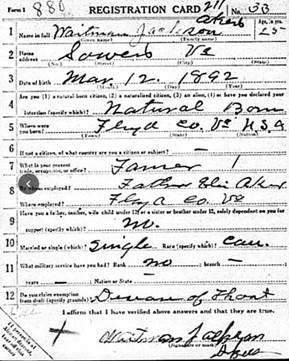 Form 1 880 REGISTRATION CARD No. 53
Akers Age, in yrs
1 Name in full Waitman Jackson 25
(Given name) (Family name)
2 Home address Sowers Va
(No.) (Street) (City) (State)
3 Date of birth Mar. 12. 1892
(Month) (Day) (Year)
4 Are you (1) a natural born citizen, (2) a naturalized citizen, (3) an alien, (4) or have you declared your
intention (specify which)? Natural Born
5 Where were you born? Floyd Co. Va U.S.A
(Town) (State) (Nation)
6 If not a citizen, of what country are you a citizen or subject?
7 What is your present trade, occupation, or office? Farmer 1
8 By whom employed? Father Akers
Where employed? Floyd Co. Va
9 Have you a father, mother, wife, child under 12, or a sister or brother under 12, solely dependent on you for
support (specify which)? No.
10 Married or single (which)? Single Race (specify which)? Cau.
11 What military service have you had? Rank no ; branch
years Nation or State
12 Do you claim exemption from draft (specify grounds)? Disease of Throat
I affirm that I have verified above answers and that they are true.